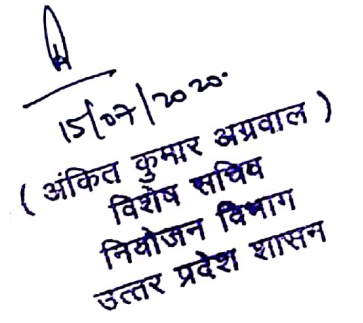 15/07/2020.
( अंकित कुमार अग्रवाल )
विशेष सचिव
नियोजन विभाग
उत्तर प्रदेश शासन